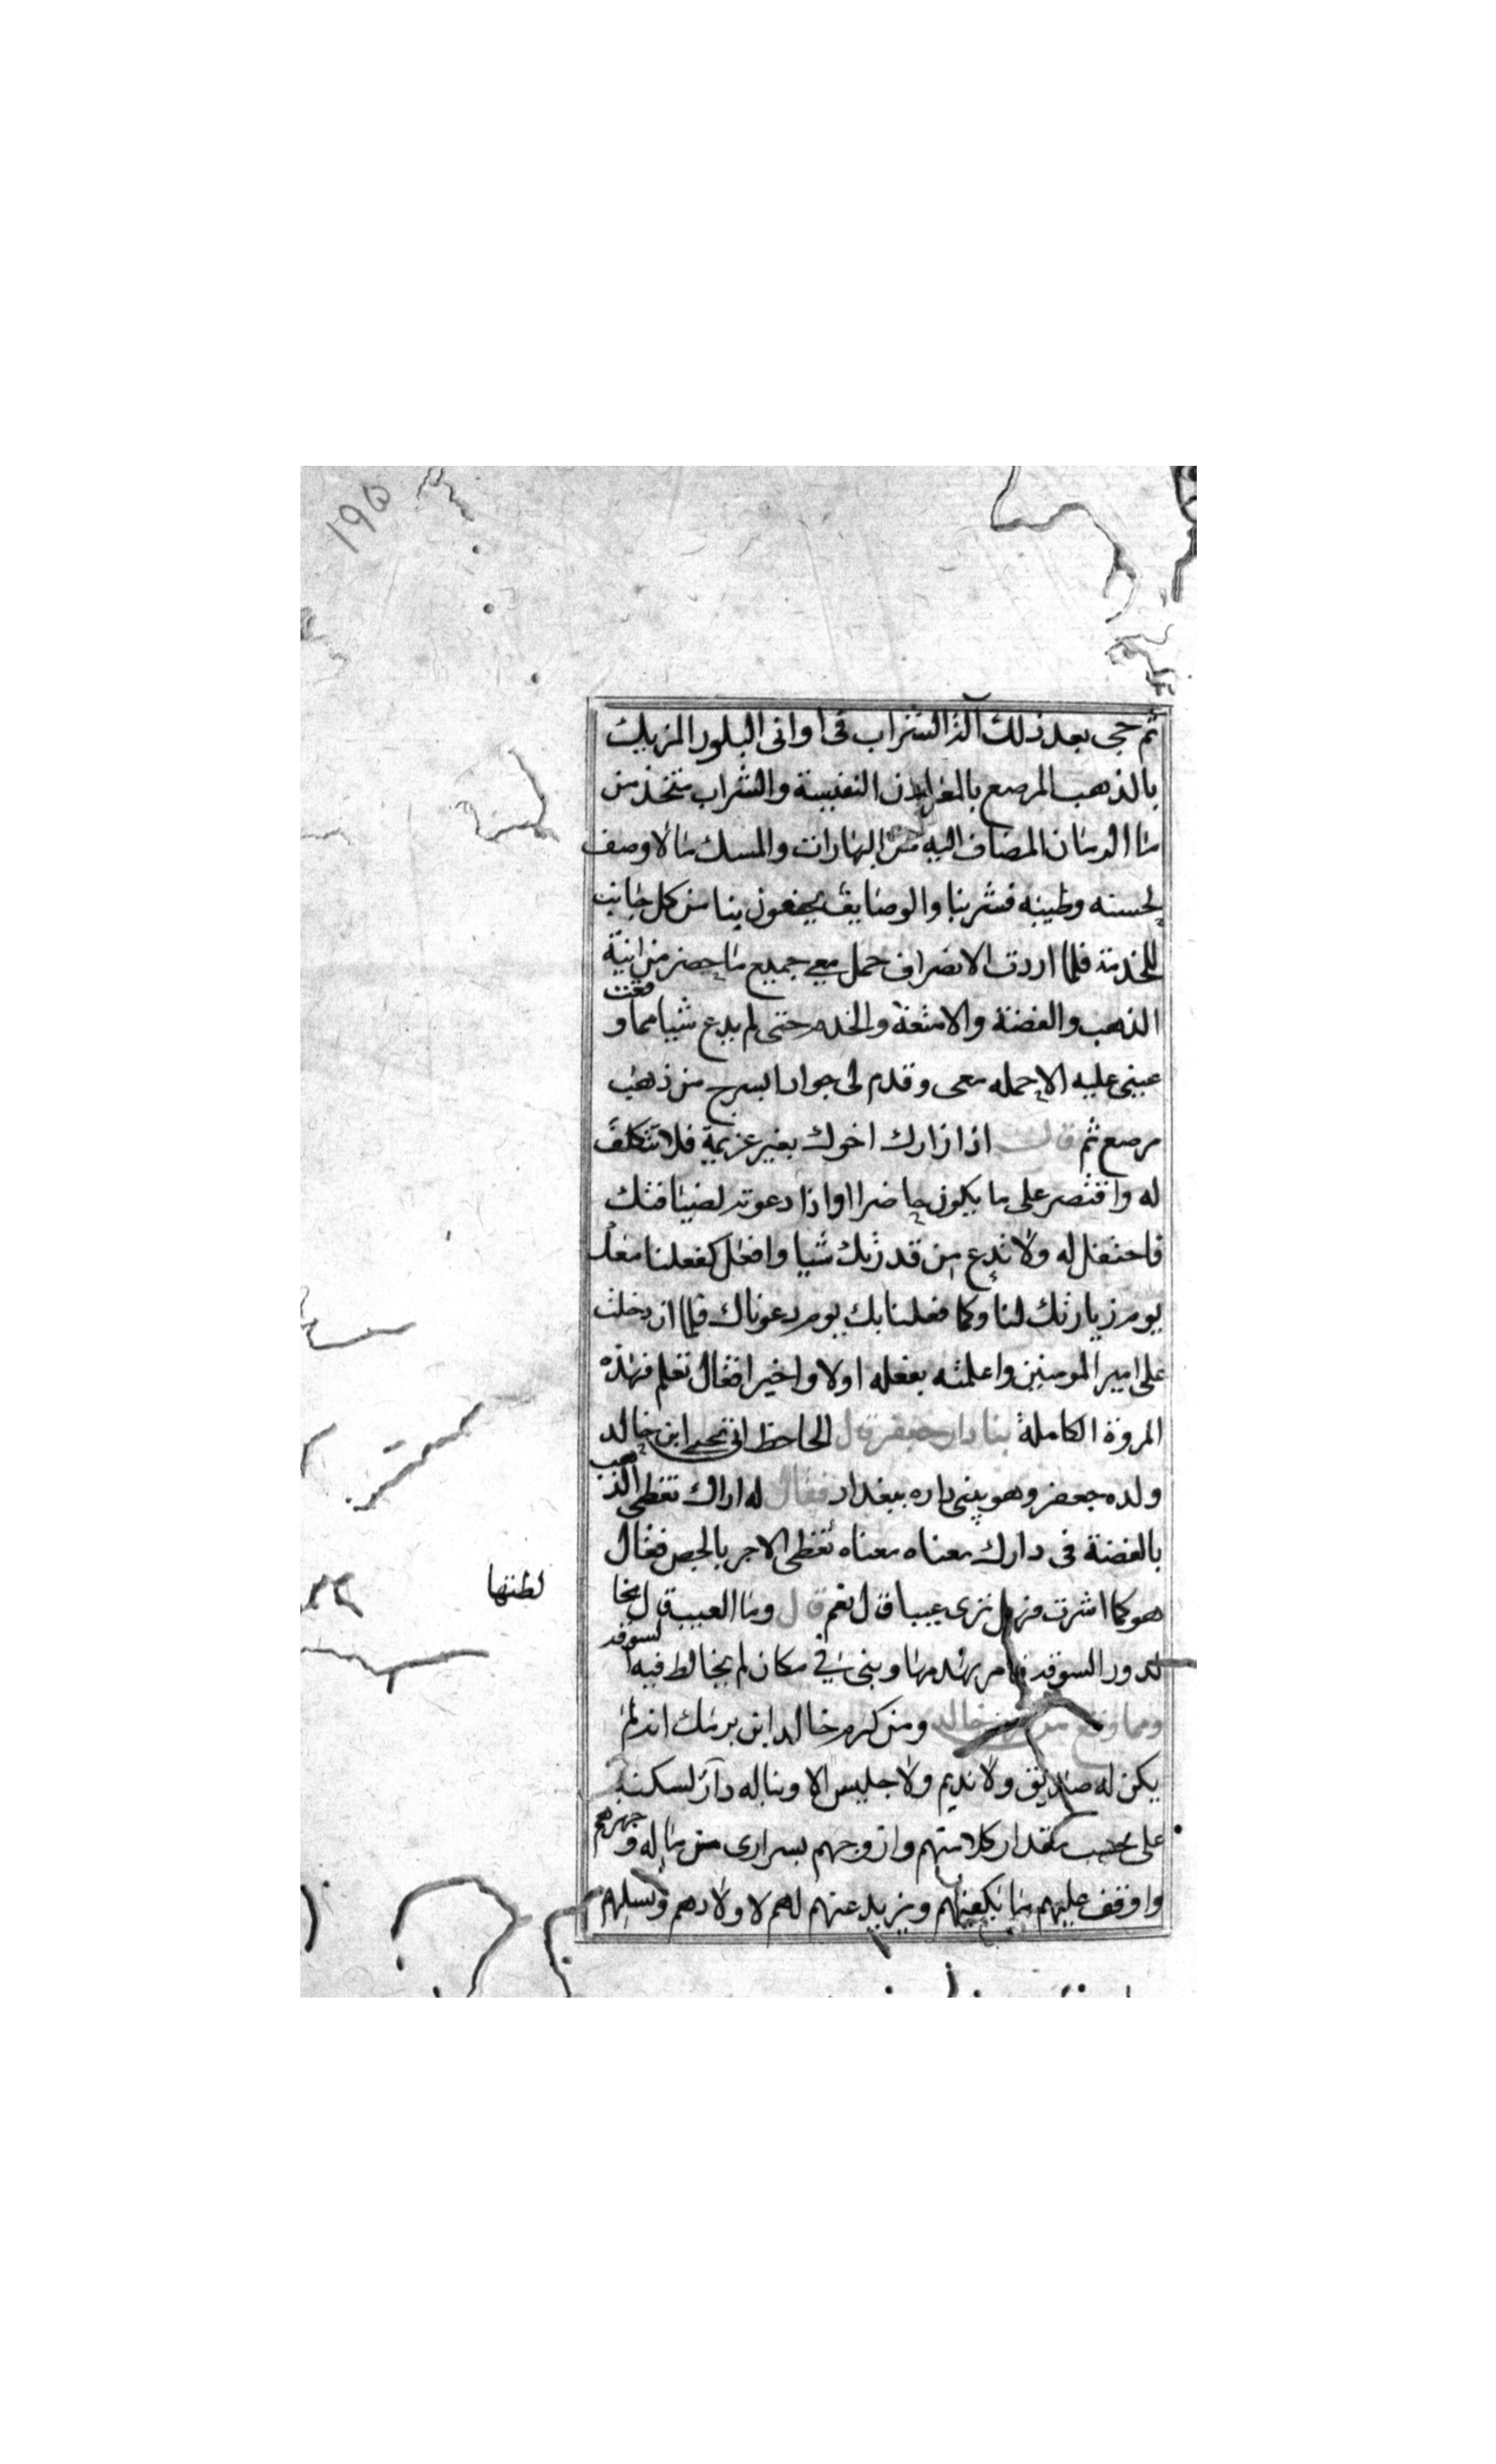 ١٩٥
ثم حجى بعد ذلك آلذ الشراب فى اوانى البلور المزيك
بالذهب المرصع بالفرايدن النفيسة والشراب متخذ من
ما الرمان المضاف اليه من البهارات والمسك ما لا وصف
لحسنه وطيبه فشربنا والوصايف يحفون بنا من كل جانب
للخدمة فلما اردت الانصراف حمل معى جميع ما حضر من انية
الذهب والفضة والامتعة والخدم حتى لم يدع شيا مما وقعت
عينى عليه الا حمله معى وقدم لى جوادا بسرج من ذهب
مرصع ثم قال اذا زارك اخوك بغير عزيمة فلا تتكلف
له واقتصر على ما يكون حاضرا اواذا دعوته لضيافتك
فاحتفل له ولا تدع من قدرتك شيا وافعل كفعلنا معك
يوم زيارتك لنا وكما فعلنا بك يوم دعوناك فلما ان دخلت
على امير المومنين واعلمته بفعله اولا واخيرا فقال تعلم فهذه
المروة الكاملة بنا دار جعفر قال الجاحظ اتى يحيى ابن خالد
ولده جعفر وهو يبنى داره ببغداد فقال له اراك تغطى الذهب
بالفضة فى دارك معناه معناه تغطى الاجر بالجص فقال
هو كما اشرت فهل ترى عيبا قال نعم قال وما العيب قال مخا
لطتها
لدور السوقه فامر بهدمها وبنى فى مكان لم يخالط فيه السوقه
ومما وقع من خالد ومن كرم خالد ابن برمك انه لم
يكن له صديق ولا نديم ولا جليس الا وبنا له دار لسكنه
على حسب مقدار كلامتهم وازوجهم بسرارى من ماله وجهزهم
واوقف عليهم ما يكفيهم ويزيد عنهم لهم لاولادهم ونسلهم